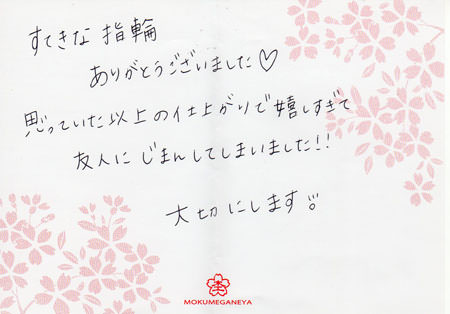 すてきな 指輪
ありがとうございました♡
思っていた以上の仕上がりで嬉しすぎて
友人に じまんしてしまいました!!
大切にします!!
MOKUMEGANEYA